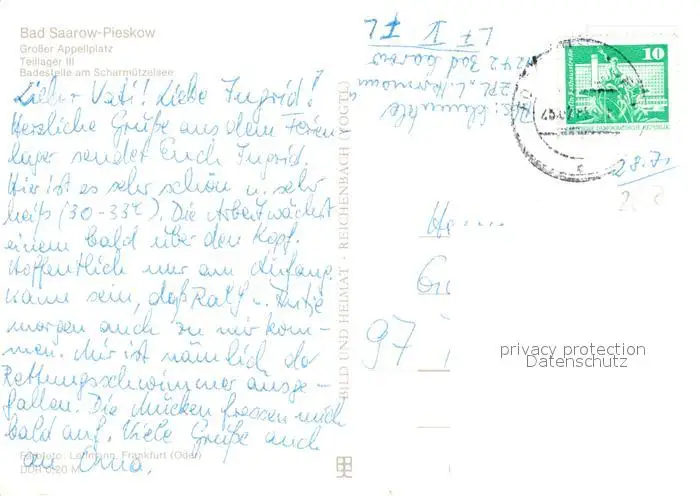 Bad Saarow-Pieskow
Großer Appellplatz
Teillager III
Badestelle am Scharmützelsee
Lieber Vati! Liebe Ingrid!
Herzliche Grüße aus dem Ferien-
lager sendet Euch Ingrid.
Hier ist es sehr schön u. sehr
heiß (30-33°C). Die Arbeit wächst
einem bald über den Kopf.
Hoffentlich nur am Anfang.
Kann sein, daß Ralf u. Antje
morgen auch zu mir kom-
men. Mir ist nämlich der
Rettungsschwimmer ausge-
fallen. Die Mücken fressen mich
bald auf. Viele Grüße auch
an Oma.
Farbfoto: Lehmann, Frankfurt (Oder)
DDR 0,20 M
BILD UND HEIMAT · REICHENBACH (VOGTL)
ZPL
1242 Bad Saarow
LF V
10
DEUTSCHE DEMOKRATISCHE REPUBLIK
28.7.
97
privacy protection
Datenschutz